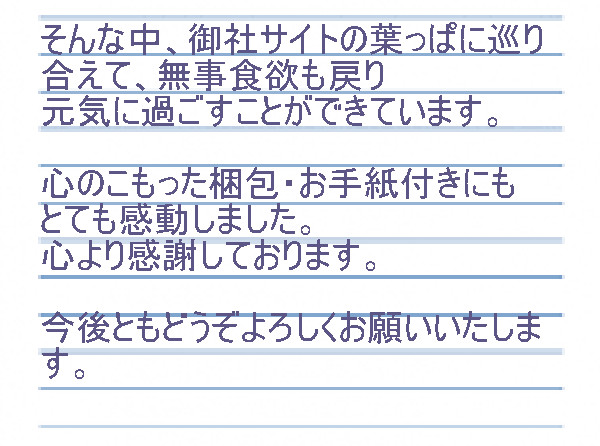 そんな中、御社サイトの葉っぱに巡り
合えて、無事食欲も戻り
元気に過ごすことができています。
心のこもった梱包・お手紙付きにも
とても感動しました。
心より感謝しております。
今後ともどうぞよろしくお願いいたしま
す。